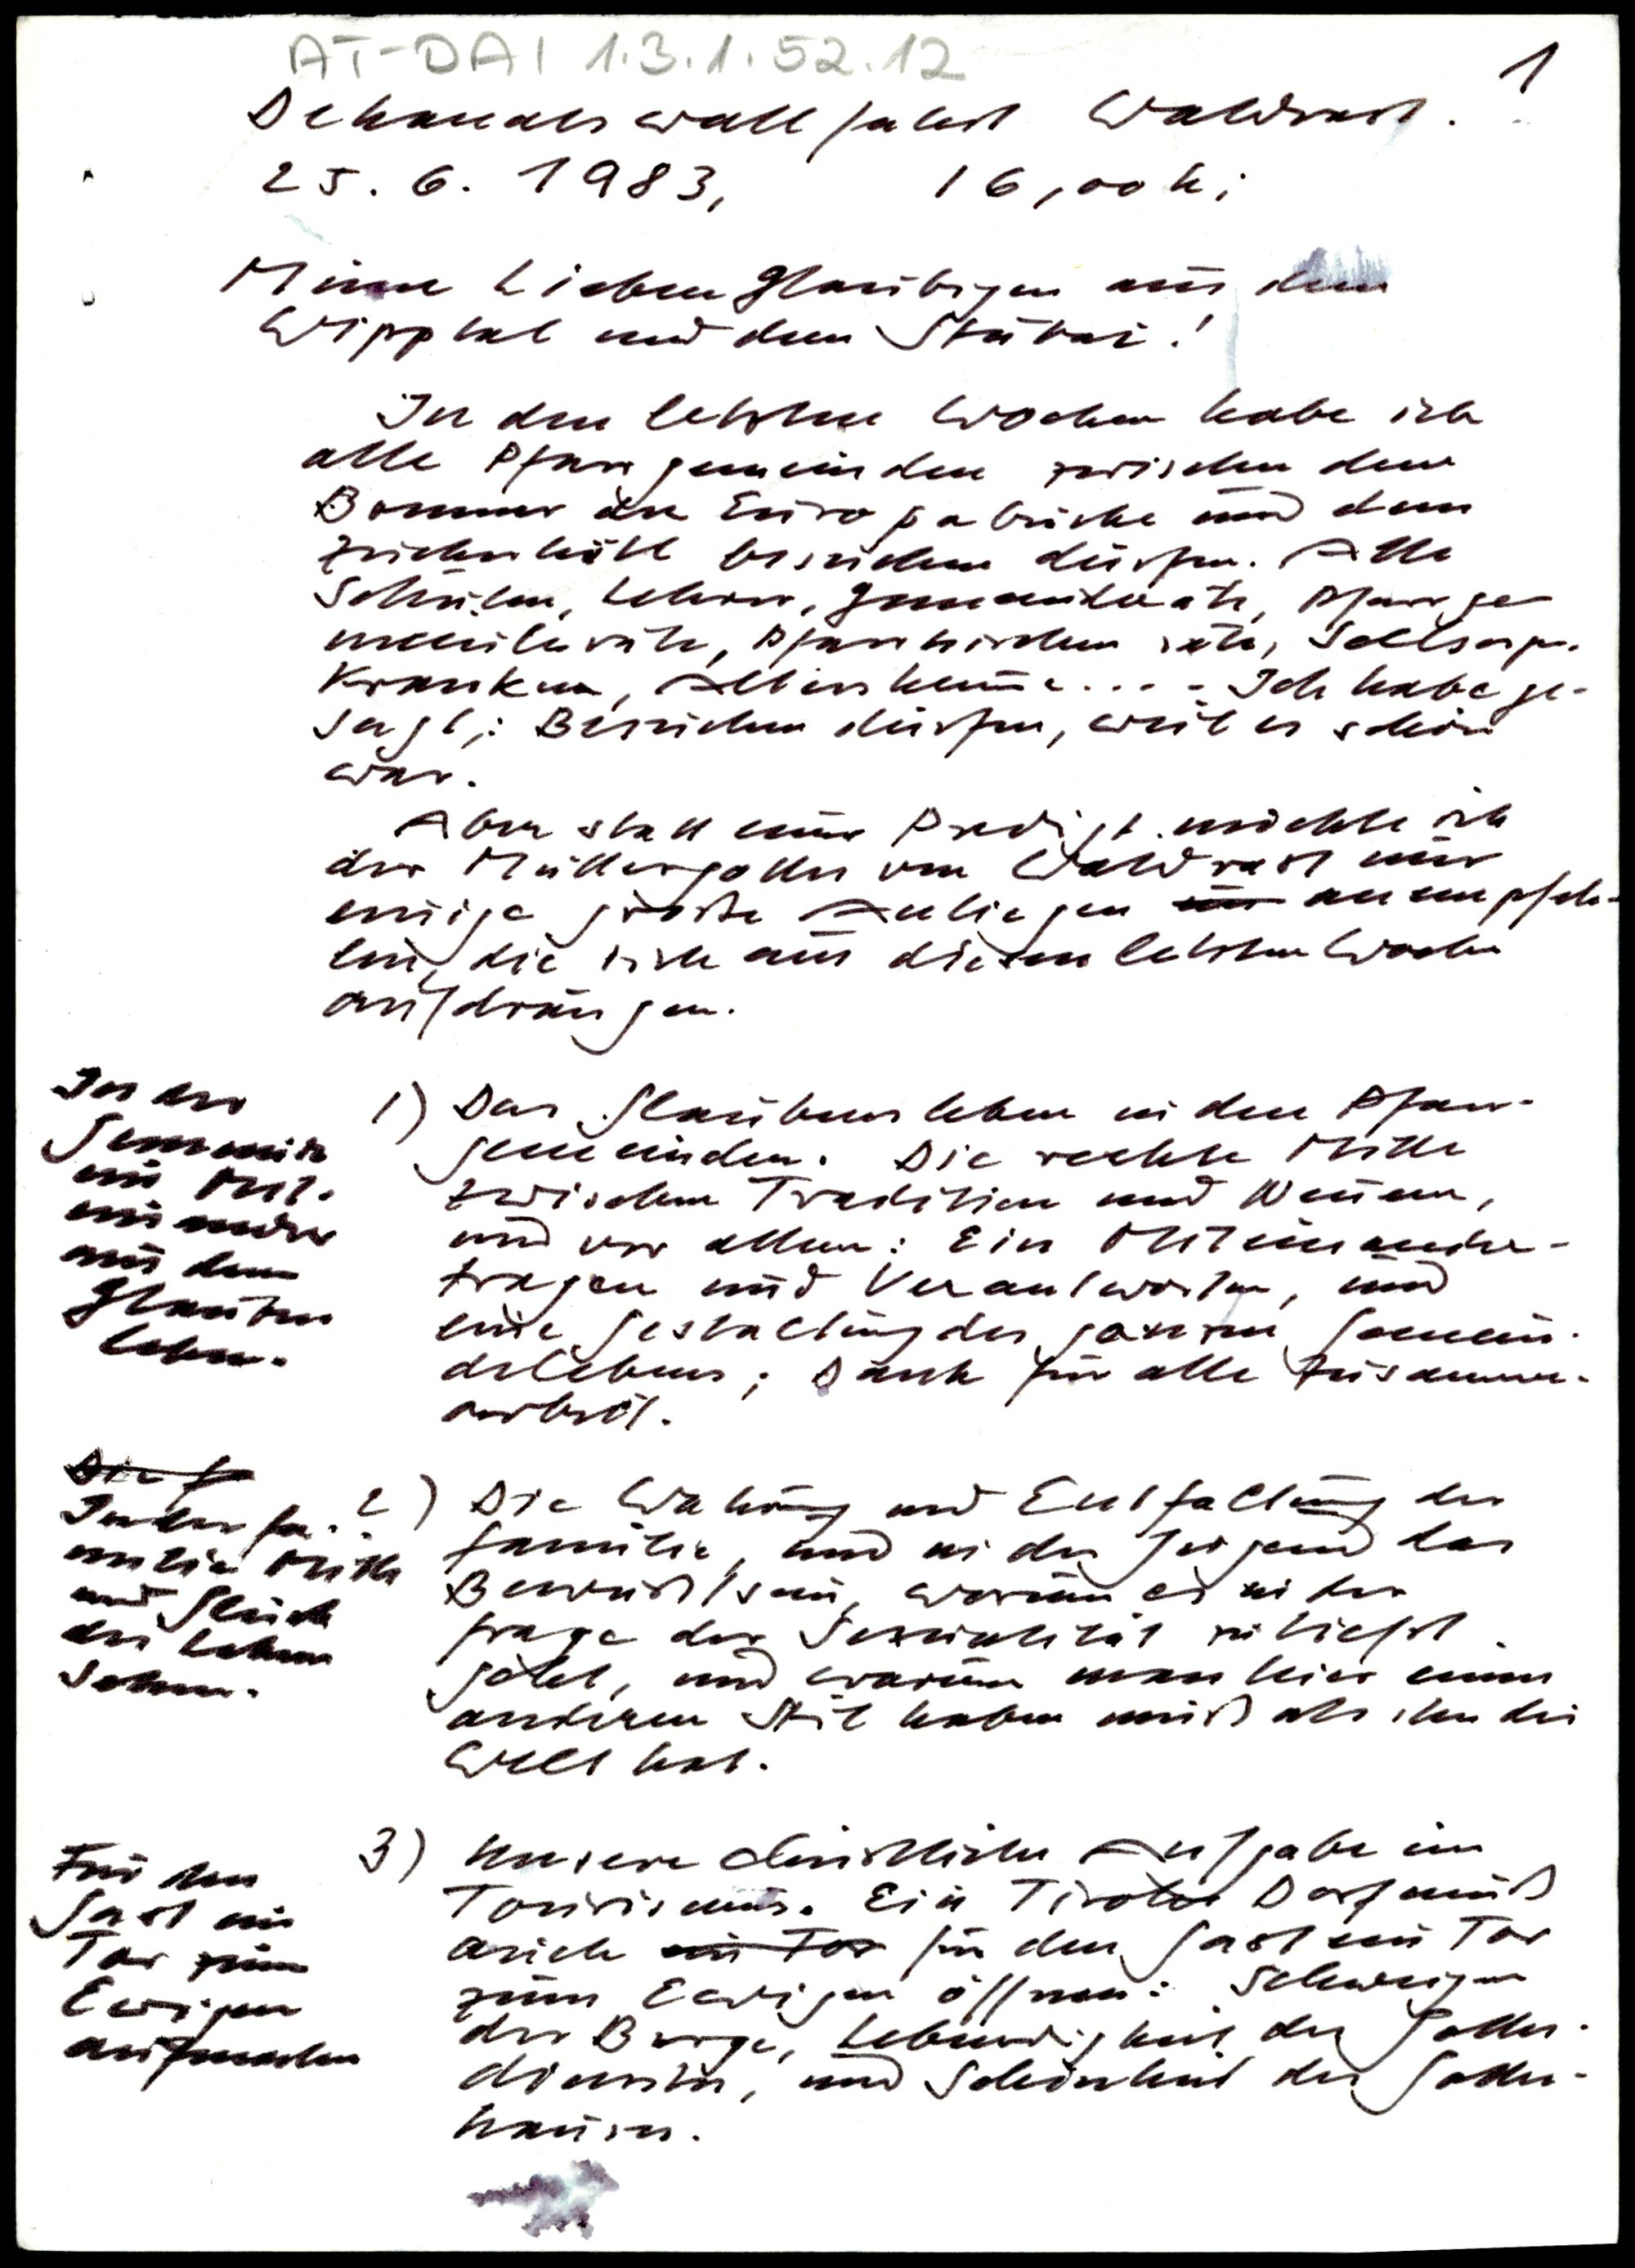 AT-DAI 1.3.1.52.12
1
Dekanatswallfahrt Waldrast.
25. 6. 1983, 16,00 h;
Meine Lieben Gläubigen aus dem
Wipptal und dem Stubai!
In den letzten Wochen habe ich
alle Pfarrgemeinden zwischen dem
Brenner der Europabrücke und dem
besuchen dürfen. Alle
Schulen, Lehrer, Gemeinderäte, Pfarrge-
meinderäte, Pfarrkirchenräte, Seelsorger.
Kranken, Altersheime.... Ich habe ge-
sagt,: Besuchen dürfen, weil es schön
war.
Aber statt einer Predigt möchte ich
der Muttergottes von Waldrast nur
einige große Anliegen nur anempfeh-
len, die sich aus diesen letzten Wochen
aufdrängen.
In der
Gemeinde
ein Mit-
einander
aus dem
Glauben
leben.
1) Das Glaubensleben in den Pfarr-
gemeinden. Die rechte Mitte
zwischen Tradition und Neuem,
und vor allem: Ein Miteinander-
tragen und Verantworten, und
eine Gestaltung des ganzen Gemein-
delebens; Dank für alle Zusammen-
arbeit.
Die Fa
In der Fa-
milie Mitte
und Glück
des Lebens
sehen.
2) Die Wahrung und Entfaltung der
Familie, und in der Jugend das
Bewußtsein, worum es in der
Frage der Sexualität zutiefst
geht, und warum man hier einen
anderen Stil haben muß als ihn die
Welt hat.
Für den
Gast ein
Tor zum
Ewigen
aufmachen
3) Unsere christliche Aufgabe im
Tourismus. Ein Tiroler Dorf muß
auch ein Tor für den Gast ein Tor
zum Ewigen öffnen: Schweigen
der Berge, Lebendigkeit des Gottes-
dienstes, und Schönheit des Gottes-
hauses.